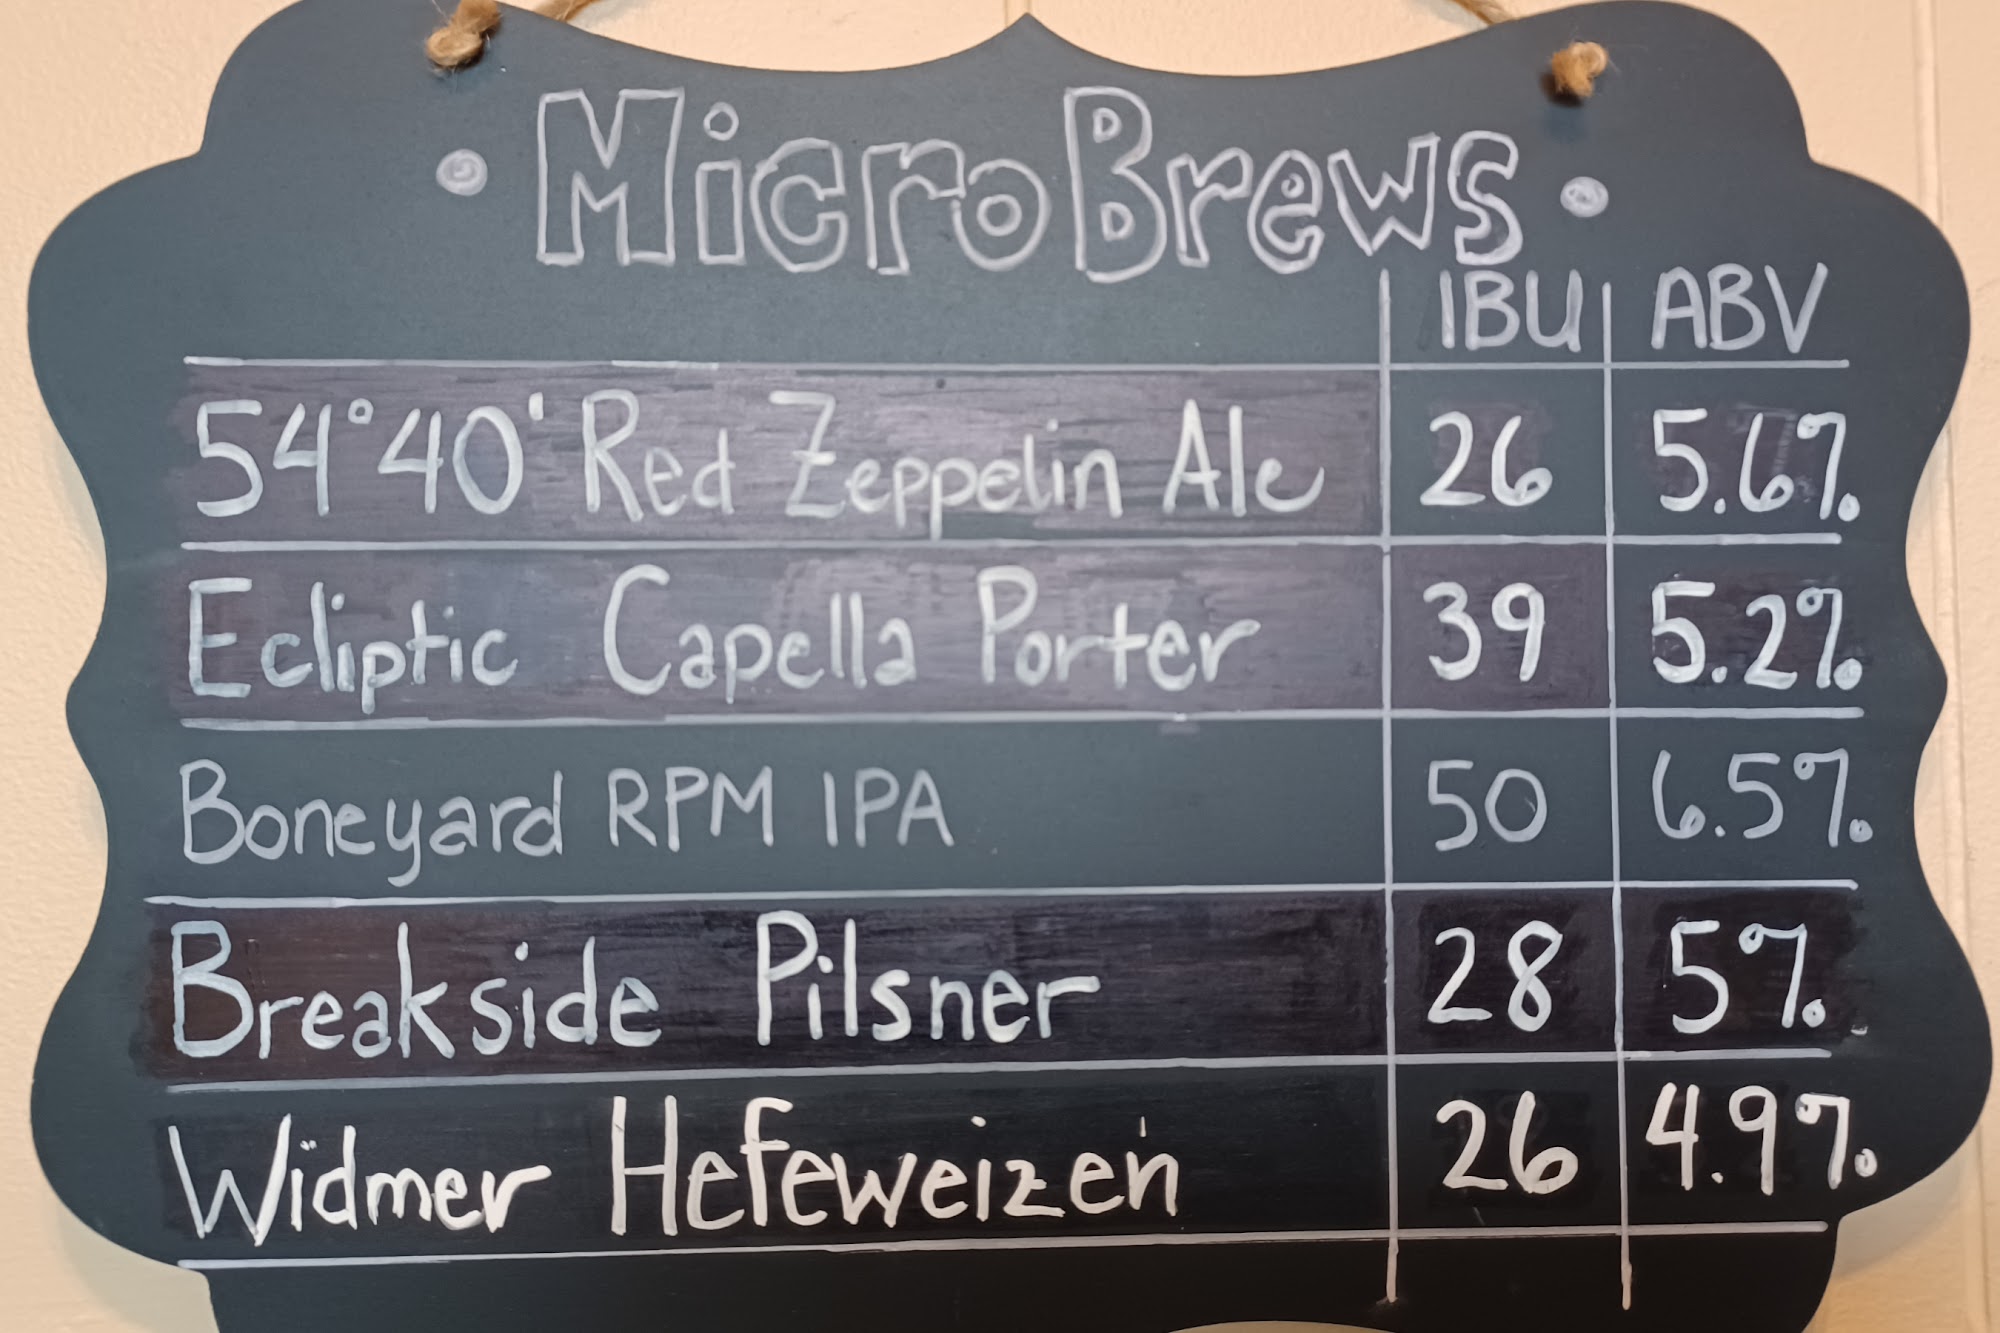 • MicroBrews •
IBU ABV
54°40' Red Zeppelin Ale 26 5.6%
Ecliptic Capella Porter 39 5.2%
Boneyard RPM IPA 50 6.5%
Breakside Pilsner 28 5%
Widmer Hefeweizen 26 4.9%